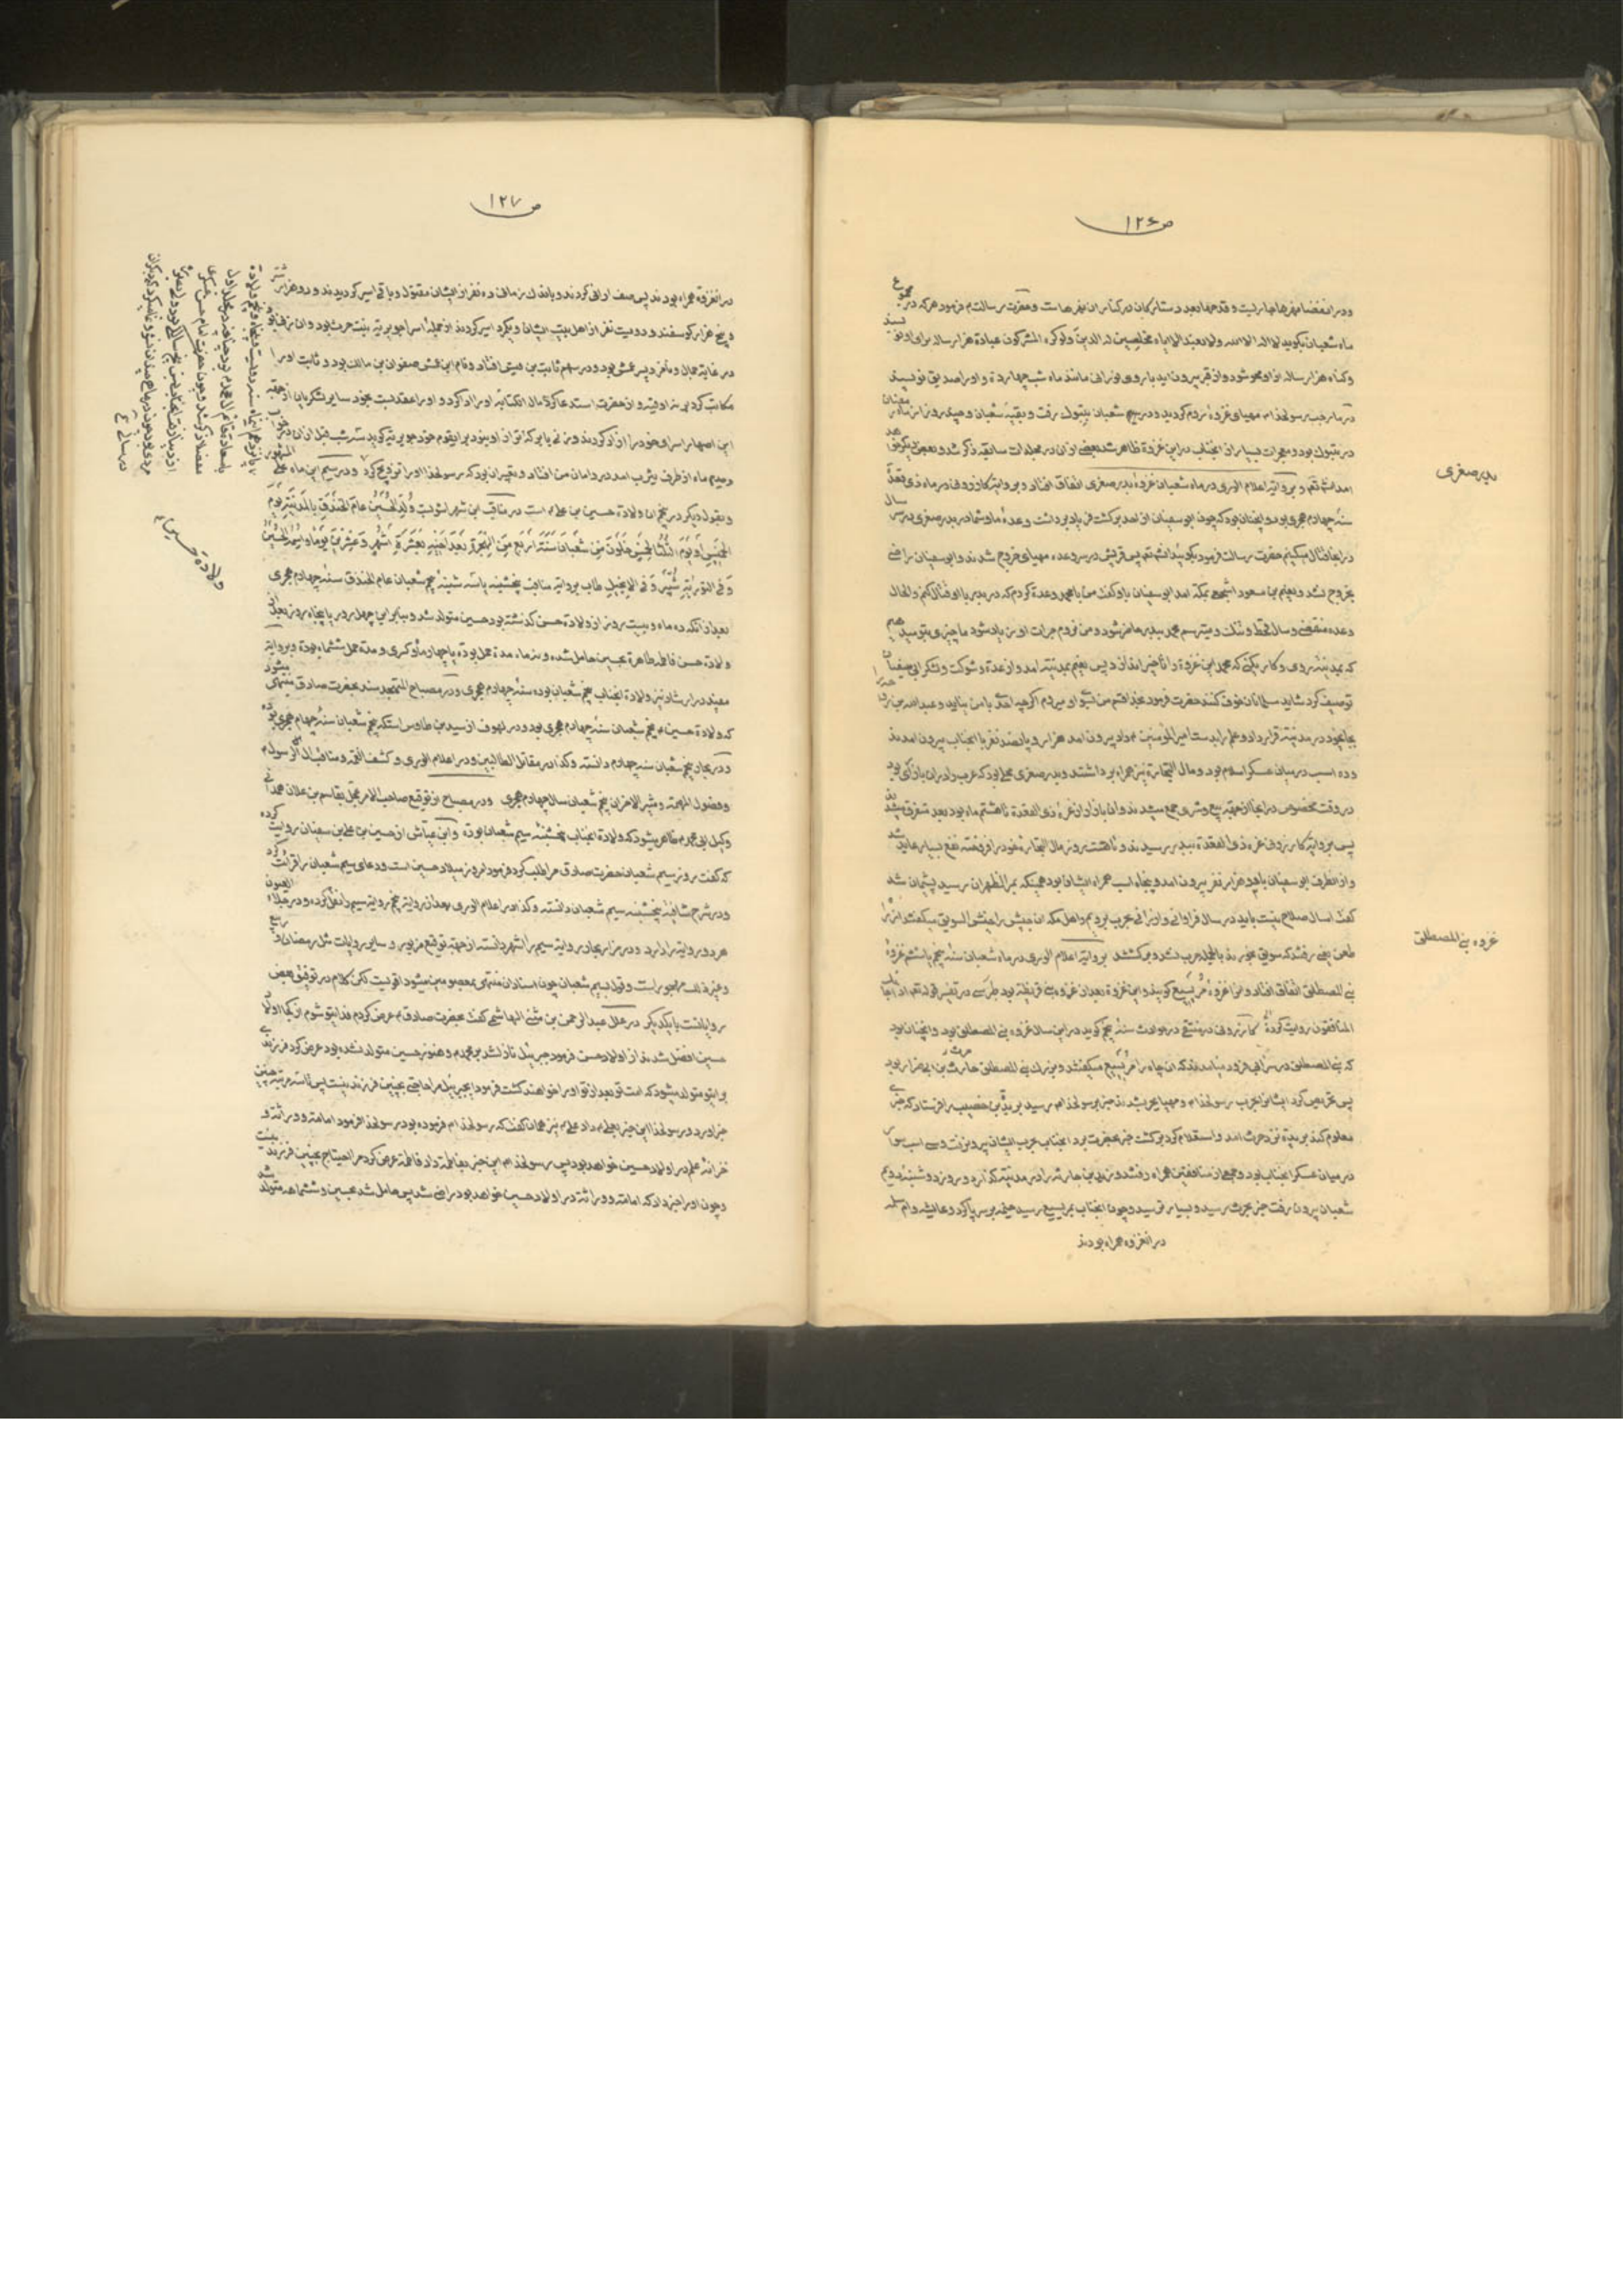 ص ۱۲۶
در انفضا نهرها جاریست و قدحها بعدد ستارگان در کنار ان نهرهاست و حضرت رسالت م فرمود هر که در مجموع
ماه شعبان بگوید لا اله الا الله ولا نعبد الا ایاه مخلصین له الدین ولو کره المشرکون عبادة هزار ساله برای او نویسند
و گناه هزار ساله از او محو شود و از قبر بیرون اید با روی نورانی مانند ماه شب چهارده و او را صدیق نویسند
در ماه رجب رسولخدا م مهیای غزوهٔ روم گردید و در پنجم شعبان بتبوک رفت و بقیه شعبان و چند روز از ماه رمضان
در تبوک بود و معجزات بسیار از انجناب در این غزوة ظاهر شد بعضی از ان در مجلدات سابقه ذکر شد و بعض دیگر خواهد
امد انشاءالله تعم و بروایة اعلام الوری در ماه شعبان غزوهٔ بدر صغری اتفاق افتاد و بروایة کازرونی در ماه ذی قعدة
بدر صغری
سنهٔ چهارم هجری بود و انچنان بود که چون ابو سفیان از احد برگشت فریاد برداشت وعدهٔ ما و شما در بدر صغری در سر سال
در انجا قتال میکنیم حضرت رسالت فرمود بگوئید انشاءالله تعم پس قریش در سر وعده مهیای خروج شدند و ابو سفیان راضی
بخروج نشد و نعیم بن مسعود اشجعی بمکه امد ابو سفیان باو گفت من با محمد وعدة کردم که در بدر با او قتال کنم و الحال
وعده منقضی و سال قحط و تنگ و میترسم محمد ببدر حاضر شود و من نروم جرات او زیاد شود ما چیزی بتو میدهیم
که بمدینه روی و کاری کنی که محمد این غزوة را تأخیر اندازد پس نعیم بمدینه امد و از عدة و شوکت و لشکر ابی سفیان
توصیف کرد شاید مسلمانان خوف کنند حضرت فرمود بخدا قسم من البته میروم اگرچه احدی با من نیاید و عبدالله بن رواحه را
بجای خود در مدینه قرار داد و علم را بدست امیرالمؤمنین ع داد بیرون امد هزار و پانصد نفر با انجناب بیرون امدند
و ده اسب در میان عسکر اسلام بود و مال التجارة نیز همراه برداشتند و بدر صغری محلی بود که عرب را در ان بازاری بود
در وقت مخصوص در انجا از جهة بیع و شری جمع میشدند و ان بازار از غرهٔ ذی القعدة تا هشتم ماه بود بعد متفرق میشدند
پس بروایة کازرونی غره ذی القعدة ببدر رسیدند و تا هشت روز مال التجارة خود را فروخته نفع بسیار عاید شد
و از انطرف ابو سفیان با دو هزار نفر بیرون امد و پنجاه اسب همراه ایشان بود همینکه بمر الظهران رسید پشیمان شد
گفت امسال صلاح نیست باید در سال فراوانی و ارزانی بحرب برویم و اهل مکه ان جیش را جیش السویق میگفتند از راه
طعن یعنی رفتند که سویق بخورند بالجمله حرب نشد و برگشتند بروایة اعلام الوری در ماه شعبان سنهٔ پنجم یا ششم غزوهٔ
غزوه بنی المصطلق
بنی المصطلق اتفاق افتاد و انرا غزوهٔ مُرَیسِیع گویند و این غزوة بعد از غزوه بنی قریظه بود طبرسی در تفسیر قوله تعم اذا جاءک
المنافقون روایت کردة کازرونی در منتقی در حوادث سنهٔ پنجم گوید در این سال غزوه بنی المصطلق بود و انچنان بود
که بنی المصطلق در سر ابی فرود میامدند که ان چاه را مریسیع میگفتند و بزرک بنی المصطلق حارث بن ابی ضرار بود
پس تحریص کرد ایشانرا بحرب رسولخدا م و مهیای حرب شدند خبر برسولخدا م رسید بریدة بن حصیب را فرستاد که خبری
معلوم کند بریدة نزد حرث امد و استعلام کرد برگشت خبر بحضرت برد انجناب بحرب ایشان بیرون رفت و سی اسب سواری
در میان عسکر انجناب بود و جمعی از منافقین همراه رفتند و زید بن حارثه را در مدینه گذارد و روز دوشنبهٔ دویم
شعبان بیرون رفت خبر بحرث رسید و بسیار ترسید و چون انجناب بمریسیع رسید خیمه بر سر پا کرد و عایشه و ام سلمه
در انغزوه همراه بودند
ص ۱۲۷
در انغزوة همراه بودند پس صف ارائی کردند و باندک زمانی ده نفر از ایشان مقتول و باقی اسیر گردیدند و دو هزار شتر
و پنج هزار گوسفند و دویست نفر از اهل بیت ایشان و بگرد اسیر کردند از جمله اسرا جویریه بنت حرث بود و ان زنی بود
در غایة جمال و در سهم ثابت بن قیس افتاد و ثابت او را
مکاتب کرد بر نه اوقیه و از حضرت استدعا کرد مال الکتابه او را ادا کرد و او را عقد بست بخود سایر لشکریان از جهة
و بقول دیگر در پنجم ان ولادة حسین بن علی ع است در مناقب ابن شهراشوبست وُلِدَ الحُسَینُ عامَ الخَندَقِ بِالمَدینَةِ یَومَ
الخَمیسِ اَو یَومَ الثُلثا لِخَمسٍ خَلَونَ مِن شَعبانَ سَنَةَ اَربَعٍ مِنَ الهِجرَةِ بَعدَ اَخیهِ بِعَشَرَةِ اَشهُرٍ وَعِشرینَ یَوماً وَاسمُهُ الحُسَینُ
وَفِی التَوریةِ شَبیر وَفِی الاِنجیلِ طاب بروایة مناقب پنجشنبه یا سه شنبهٔ پنجم شعبان عام الخندق سنهٔ چهارم هجری
بعد از انکه ده ماه و بیست روز از ولادة حسن گذشته بود حسین متولد شد و بنابراین چهل روز یا پنجاه روز بعد از
ولادة حسن فاطمه طاهرة بحسین حامل شده و نه ماه مدة حمل بودة و مدة حمل ششماه بودة و بروایة
مفید در ارشاد نیز ولادة انجناب پنجم شعبان بوده سنهٔ چهارم هجری و در مصباح المتهجد سند بحضرت صادق منتهی میشود
که ولادة حسین ع پنجم شعبان سنهٔ چهارم هجری بود و در لهوف از سید بن طاوس است که پنجم شعبان سنهٔ چهارم هجری بوده
و در بحار پنجم شعبان سنه چهارم دانسته و کذا در مقاتل الطالبین و در اعلام الوری و کشف الغمة و مناقب ال الرسول م
و فصول المهمة و مثیر الاحزان پنجم شعبان سال چهارم هجری و در مصباح از توقیع صاحب الامر عجل بقاسم بن علاء همدانی
وکیل ابی محمد م ظاهر میشود که ولادة انجناب پنجشنبه سیم شعبان بوده و ابن عیاش از حسین بن علی بن سفیان روایت کرده
که گفت روز سیم شعبان حضرت صادق مرا طلب کرد فرمود امروز میلاد حسین است و دعای سیم شعبان را قرائت کرد
و در شرح شافیه پنجشنبه سیم شعبان دانسته و کذا در اعلام الوری بعد از روایة پنجم روایة سیم را نقل کرده و در جلاء العیون
هر دو روایة را دارد و در مزار بحار روایة سیم را اشهر دانسته از جهة توقیع مزبور و سایر روایات مثل رمضان و ربیع
و غیر ذلک مهجور است و قول بسیم شعبان چون اسناد ان منتهی بمعصومین میشود اقویست لکن کلام در توفیق بعض
روایاتست با یکدیگر در علل عبدالرحمن بن مثنی الهاشمی گفت بحضرت صادق م عرض کردم فدایتو شوم از کجا اولاد
حسین افضل شدند از اولاد حسن فرمود جبرئیل نازل شد بر محمد م و هنوز حسین متولد نشده بود عرض کرد فرزندی
برایتو متولد میشود که امت تو بعد از تو او را خواهند کشت فرمود ای جبرئیل مرا حاجتی بچنین فرزند نیست پس تا سه مرتبه چنین
خبر اورد و رسولخدا این خبر بعلی م داد علی م نیز همان گفت که رسولخدا م فرموده بود رسولخدا فرمود امامة و وراثة و
خزانهٔ علم در اولاد حسین خواهد بود پس رسولخدا م این خبر بفاطمة داد فاطمة عرض کرد مرا احتیاج بچنین فرزند نیست
و چون او را خبر داد که امامة و وراثة در اولاد حسین خواهد بود راضی شد پس حامل شد بحسین و ششماهه متولد شد
ولادة حسین ع